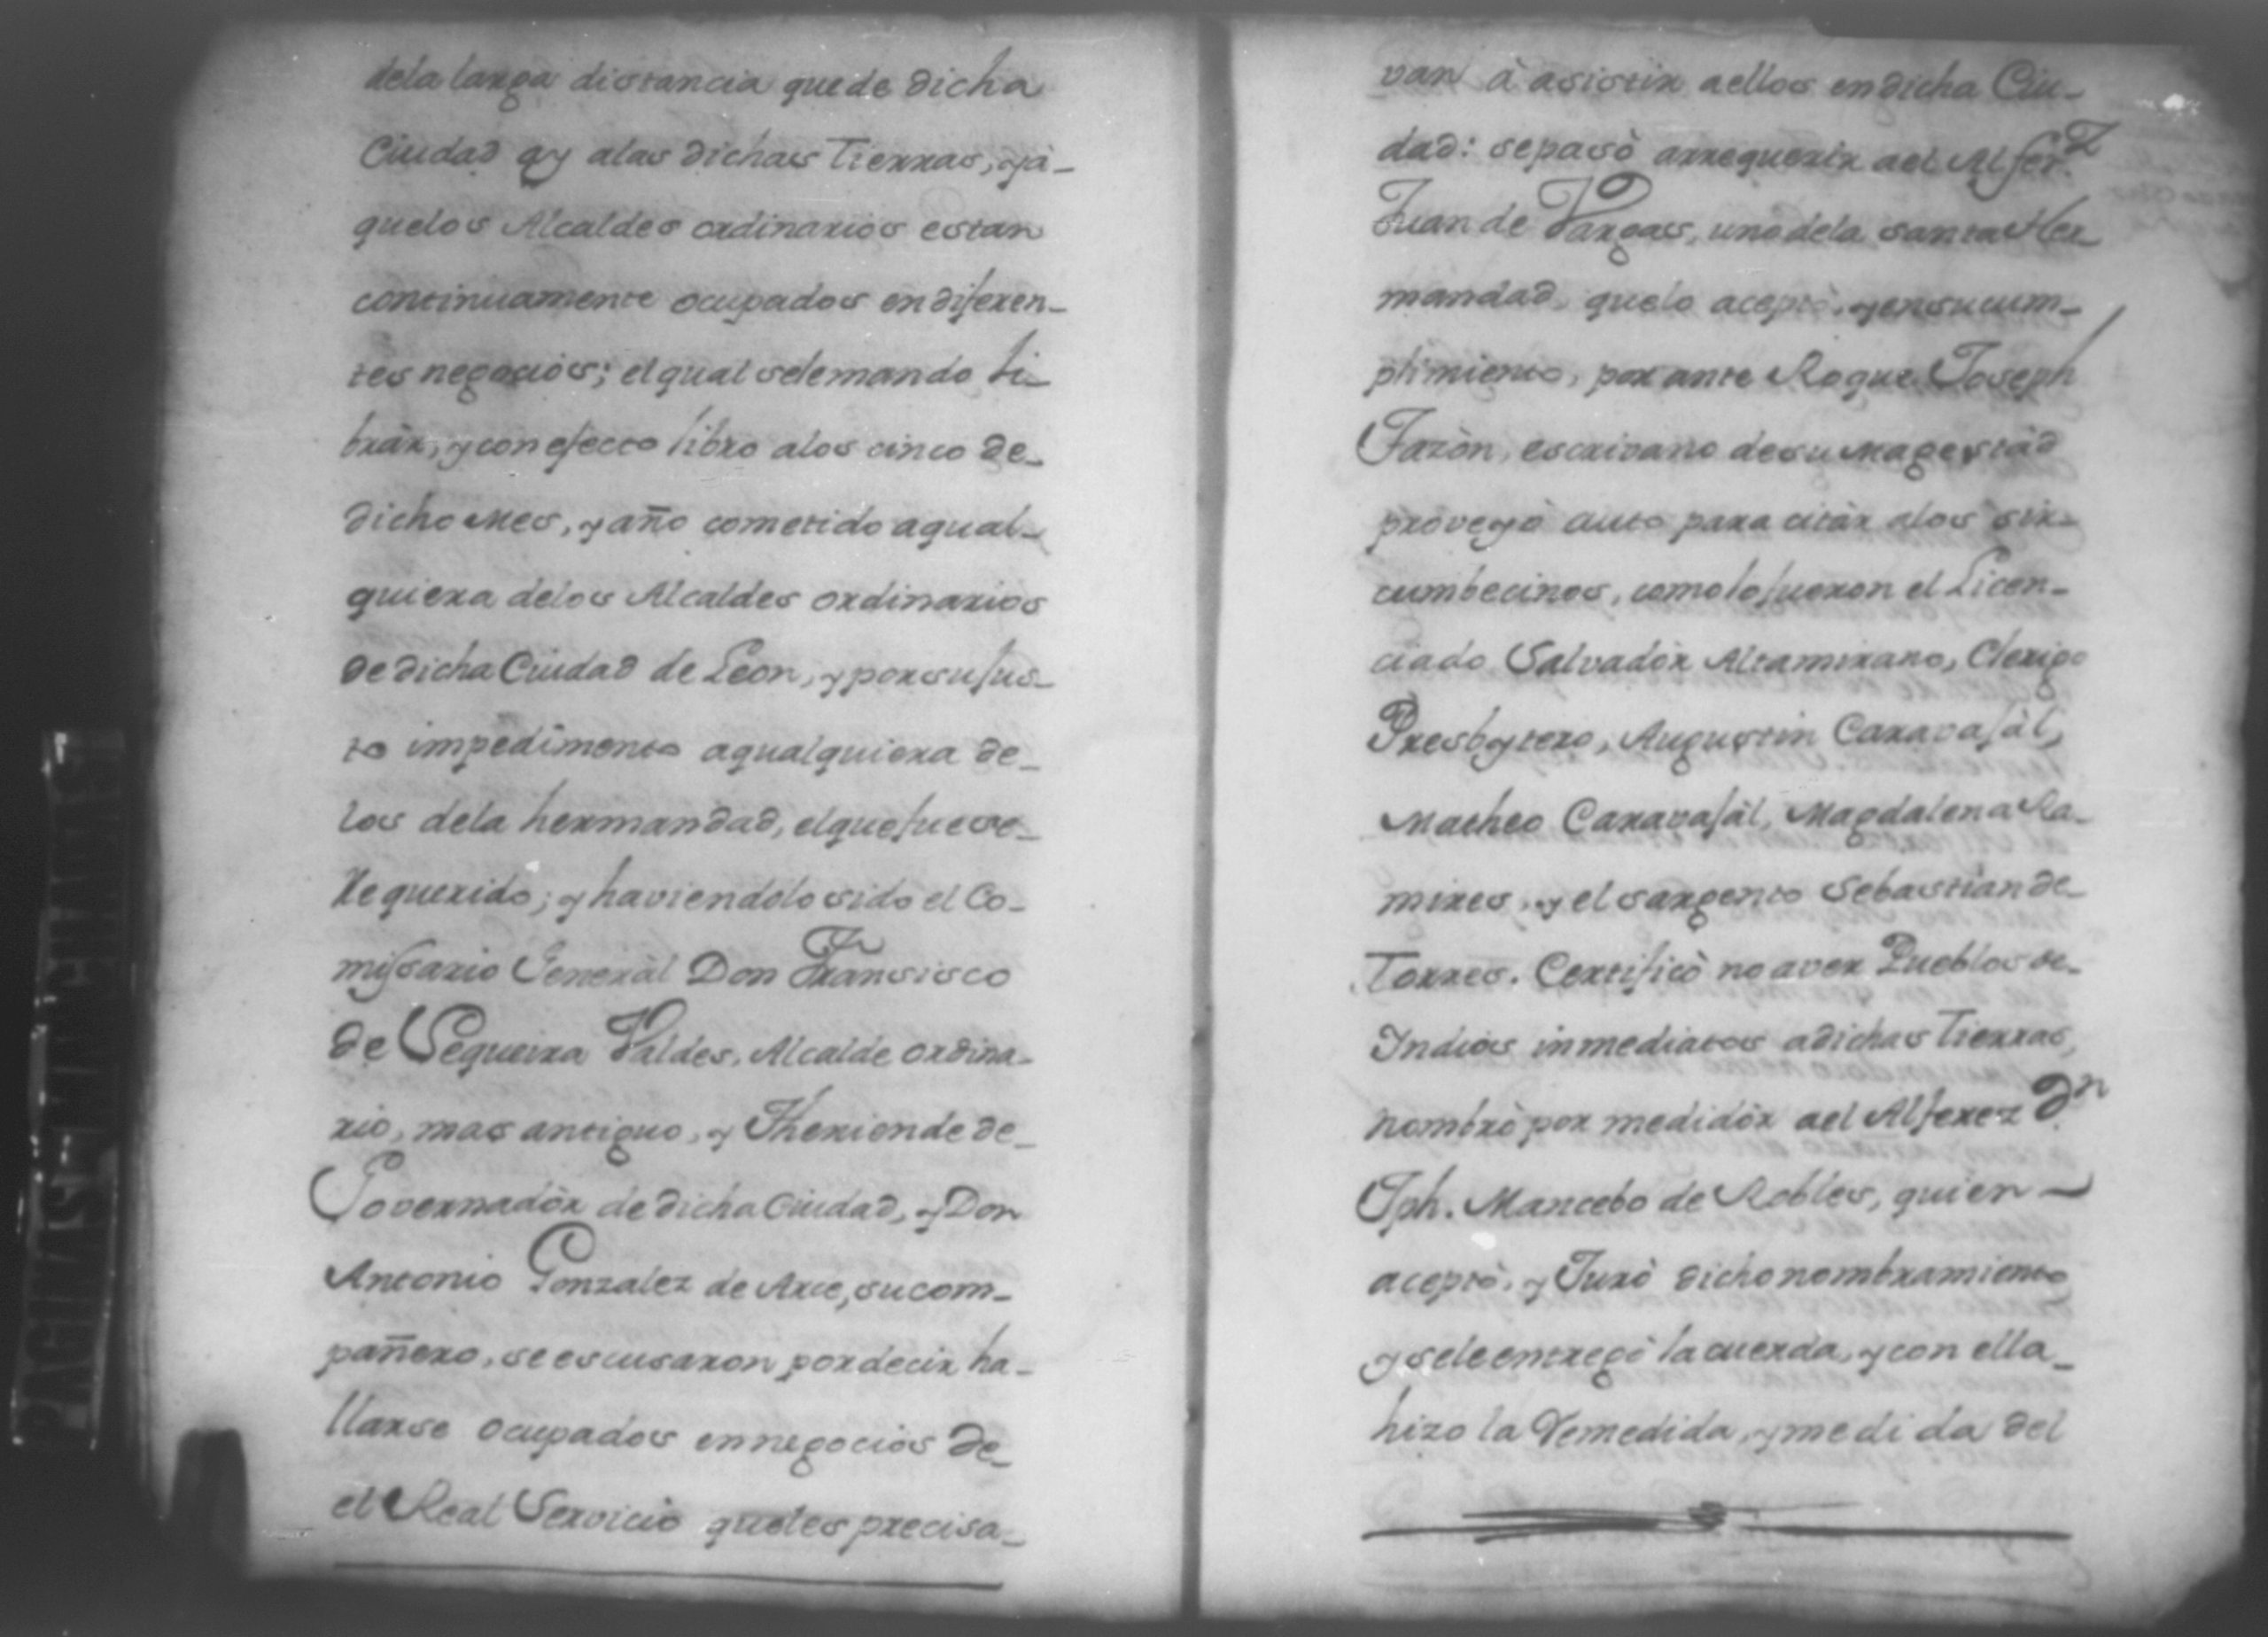 dela larga distancia quede dicha
Ciudad ay alas dichas Tierras, yà-
quelos Alcaldes ordinarios estan
continuamente ocupados endiferen-
tes negocios; elqual selemando li-
bràr, y con efecto libro alos cinco de-
dicho Mes, y año cometido aqual-
quiera delos Alcaldes ordinarios
de dicha Ciudad de Leon, y porsu jus-
to impedimento aqualquiera de-
los dela hermandad, elquefuese-
Requerido; y haviendolo sido el Co-
missario Generàl Don Fransisco
de Sequeira Valdes, Alcalde ordina-
rio, mas antiguo, y Theniende de-
Governadòr de dicha Ciudad, y Don
Antonio Gonzalez de Arce, sucom-
pañero, se escusaron pordecir ha-
llarse ocupados en negocios de-
el Real Servicio queles precisa-
van à asistir aellos endicha Ciu-
dad: sepasò arrequerir ael Alfer.z
Juan de Vargas, uno dela santa Her
mandad, quelo aceptò, y ensucum-
plimiento, por ante Roque Joseph
Fazòn, escrivano desu Magestàd
proveyò auto para citàr alos sir-
cumbecinos, comolofueron el Licen-
ciado Salvadòr Altamirano, Clerigo
Presbytero, Augustin Caravajàl,
Matheo Caravajàl, Magdalena Ra-
mires, y el sargento Sebastian de-
Torres. Certificò no aver Pueblos de-
Indios inmediatos adichas Tierras,
nombrò por medidòr ael Alferez D.n
Jph. Mancebo de Robles, quien
aceptò, y Jurò dicho nombramiento
y sele entregò la cuerda, y con ella-
hizo la Remedida, y medida del